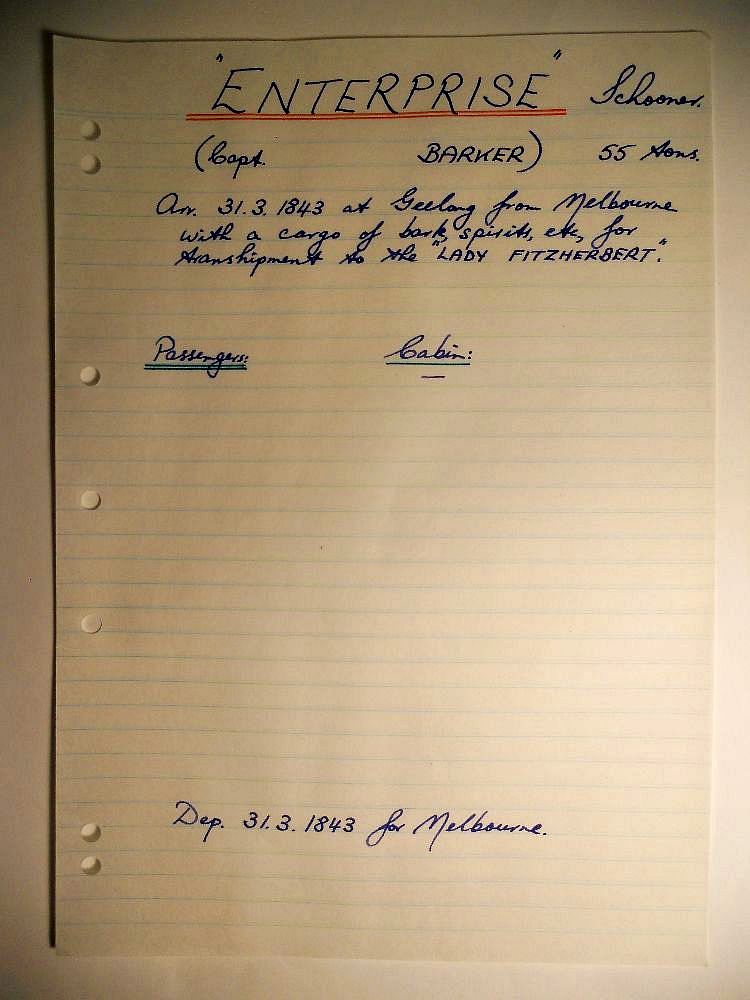 "ENTERPRISE" Schooner.
(Capt. BARKER) 55 tons.
Arr. 31.3.1843 at Geelong from Melbourne
with a cargo of bark, spirits, etc, for
transhipment to the "LADY FITZHERBERT".
Passengers: Cabin:
—
Dep. 31.3.1843 for Melbourne.